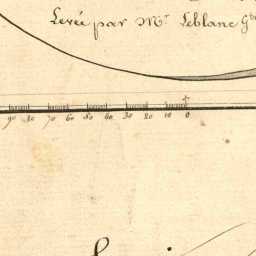 Levée par Mr. Leblanc Gde
90 80 70 60 50 40 30 20 10 0